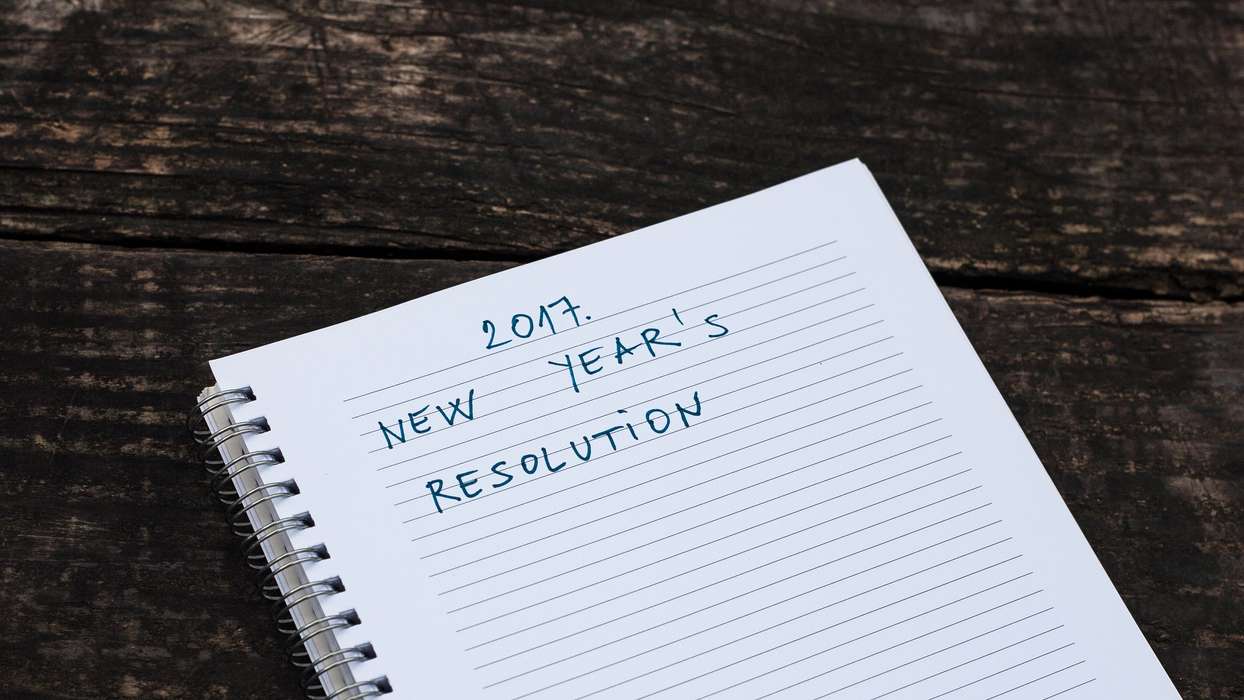 2017.
NEW YEAR'S
RESOLUTiON